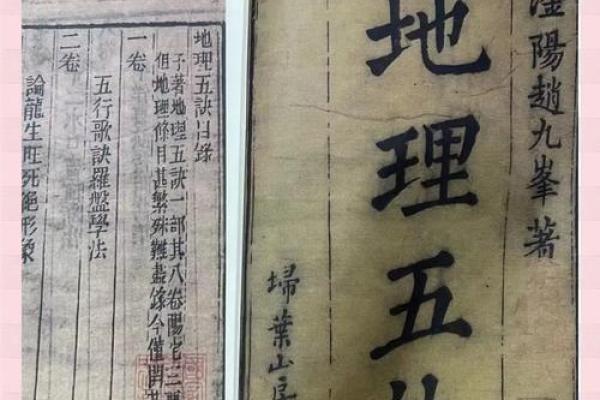 陽趙九峯著
地理五
埽葉山
地理五訣目錄
予著地理五訣一部其八卷陽宅三
但地理條目甚繁殊難盡錄今僅開
一卷
五行歌訣羅盤學法
二卷
論龍生旺死絕形象